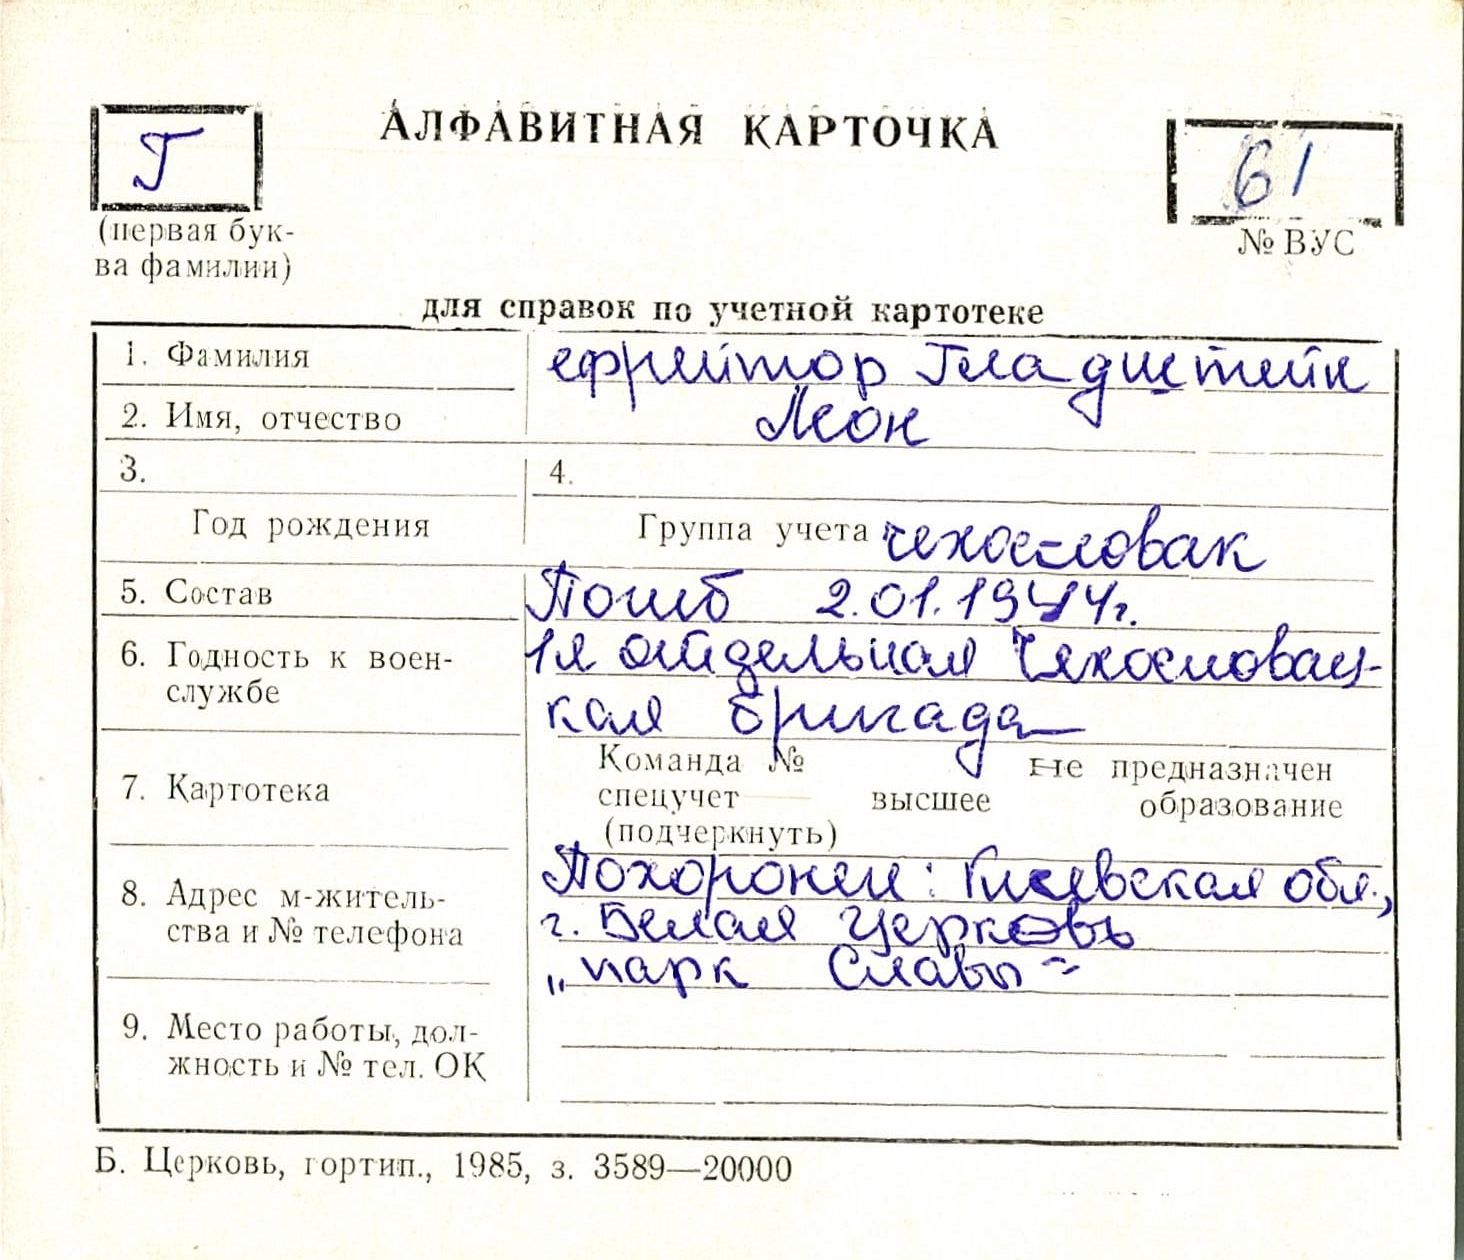 АЛФАВИТНАЯ КАРТОЧКА
Г
61
(первая бук-
ва фамилии)
№ ВУС
для справок по учетной картотеке
1. Фамилия
ефрейтор Гладиштейн
2. Имя, отчество
Леон
3.
4.
Год рождения
Группа учета чехословак
5. Состав
Погиб 2.01.1944г.
6. Годность к воен-
службе
1я отдельная Чехословац-
кая бригада
7. Картотека
Команда № не предназначен
спецучет высшее образование
(подчеркнуть)
8. Адрес м-житель-
ства и № телефона
Похоронен: Киевская обл.,
г. Белая Церковь
„парк Славы"
9. Место работы, дол-
жность и № тел. ОК
Б. Церковь, гортип., 1985, з. 3589—20000